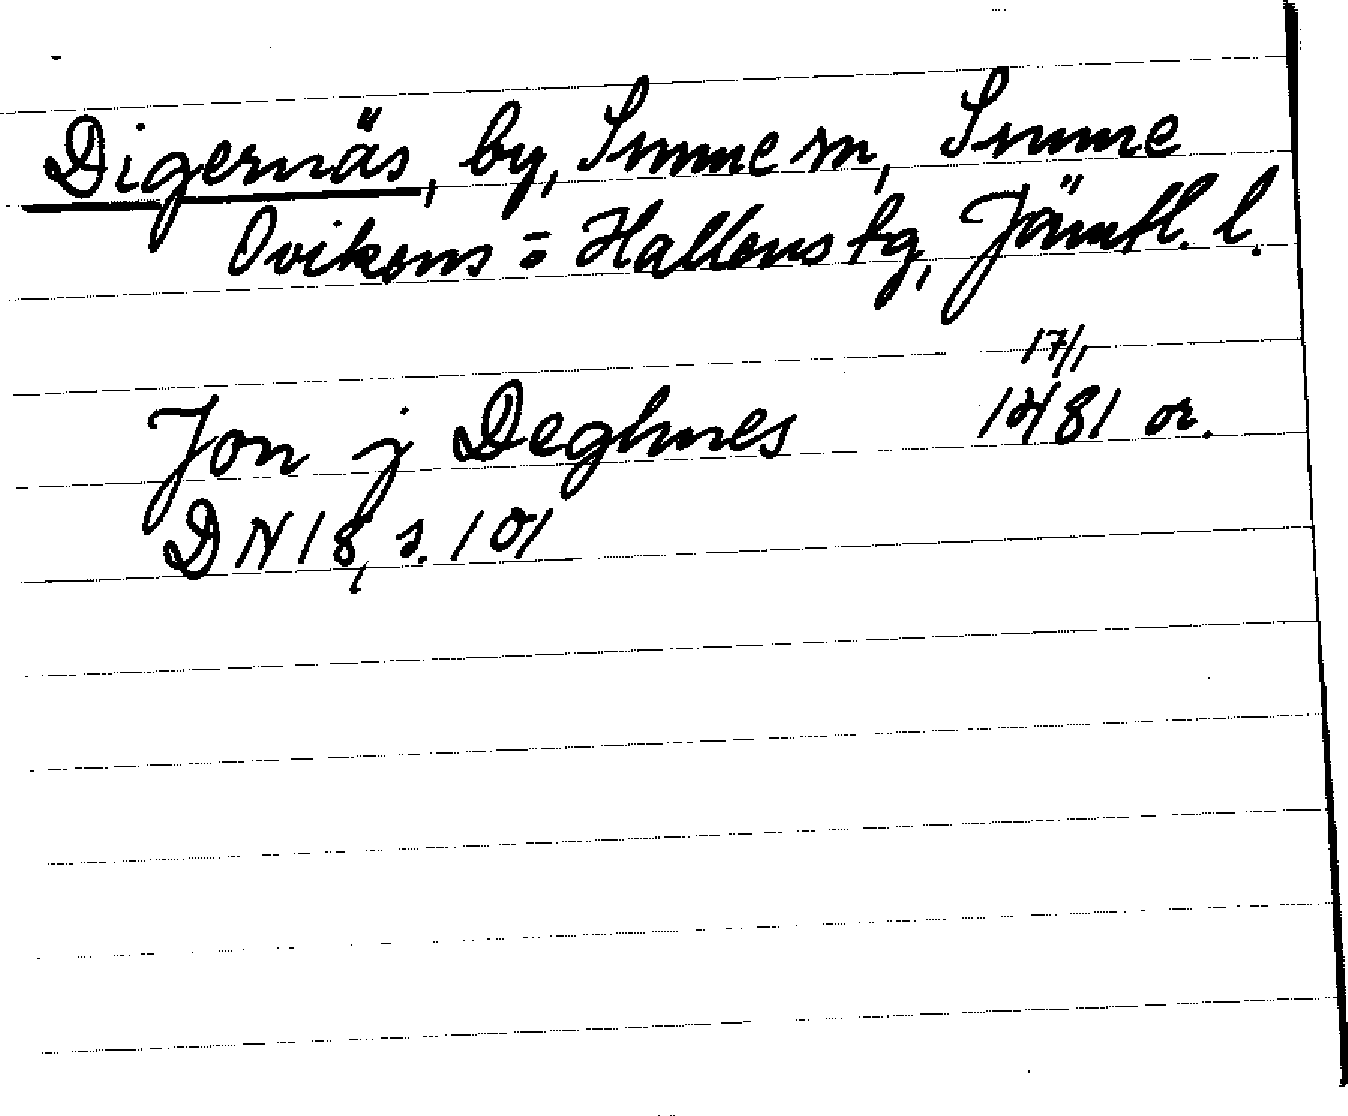 Digernäs, by, Sunne sn, Sunne
Ovikens = Hallens tg, Jämtl. l.
17/1
Jon j Deghnes 1481 or.
DN 18, s. 101